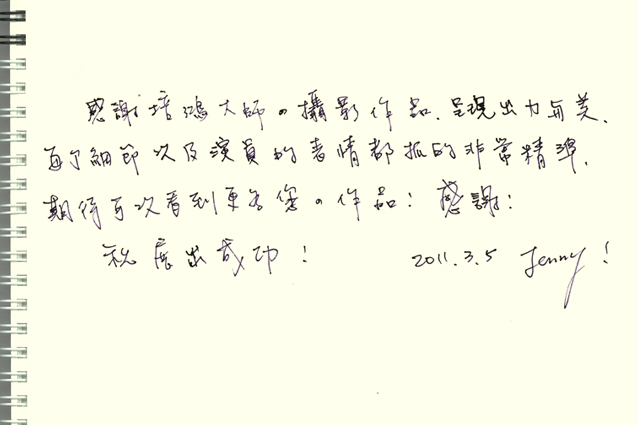 感謝培鴻大師的攝影作品.呈現出力與美.
每個細節以及演員的表情都抓的非常精準.
期待可次看到更多您的作品!感謝!
祝展出成功! 2011.3.5 Jenny!